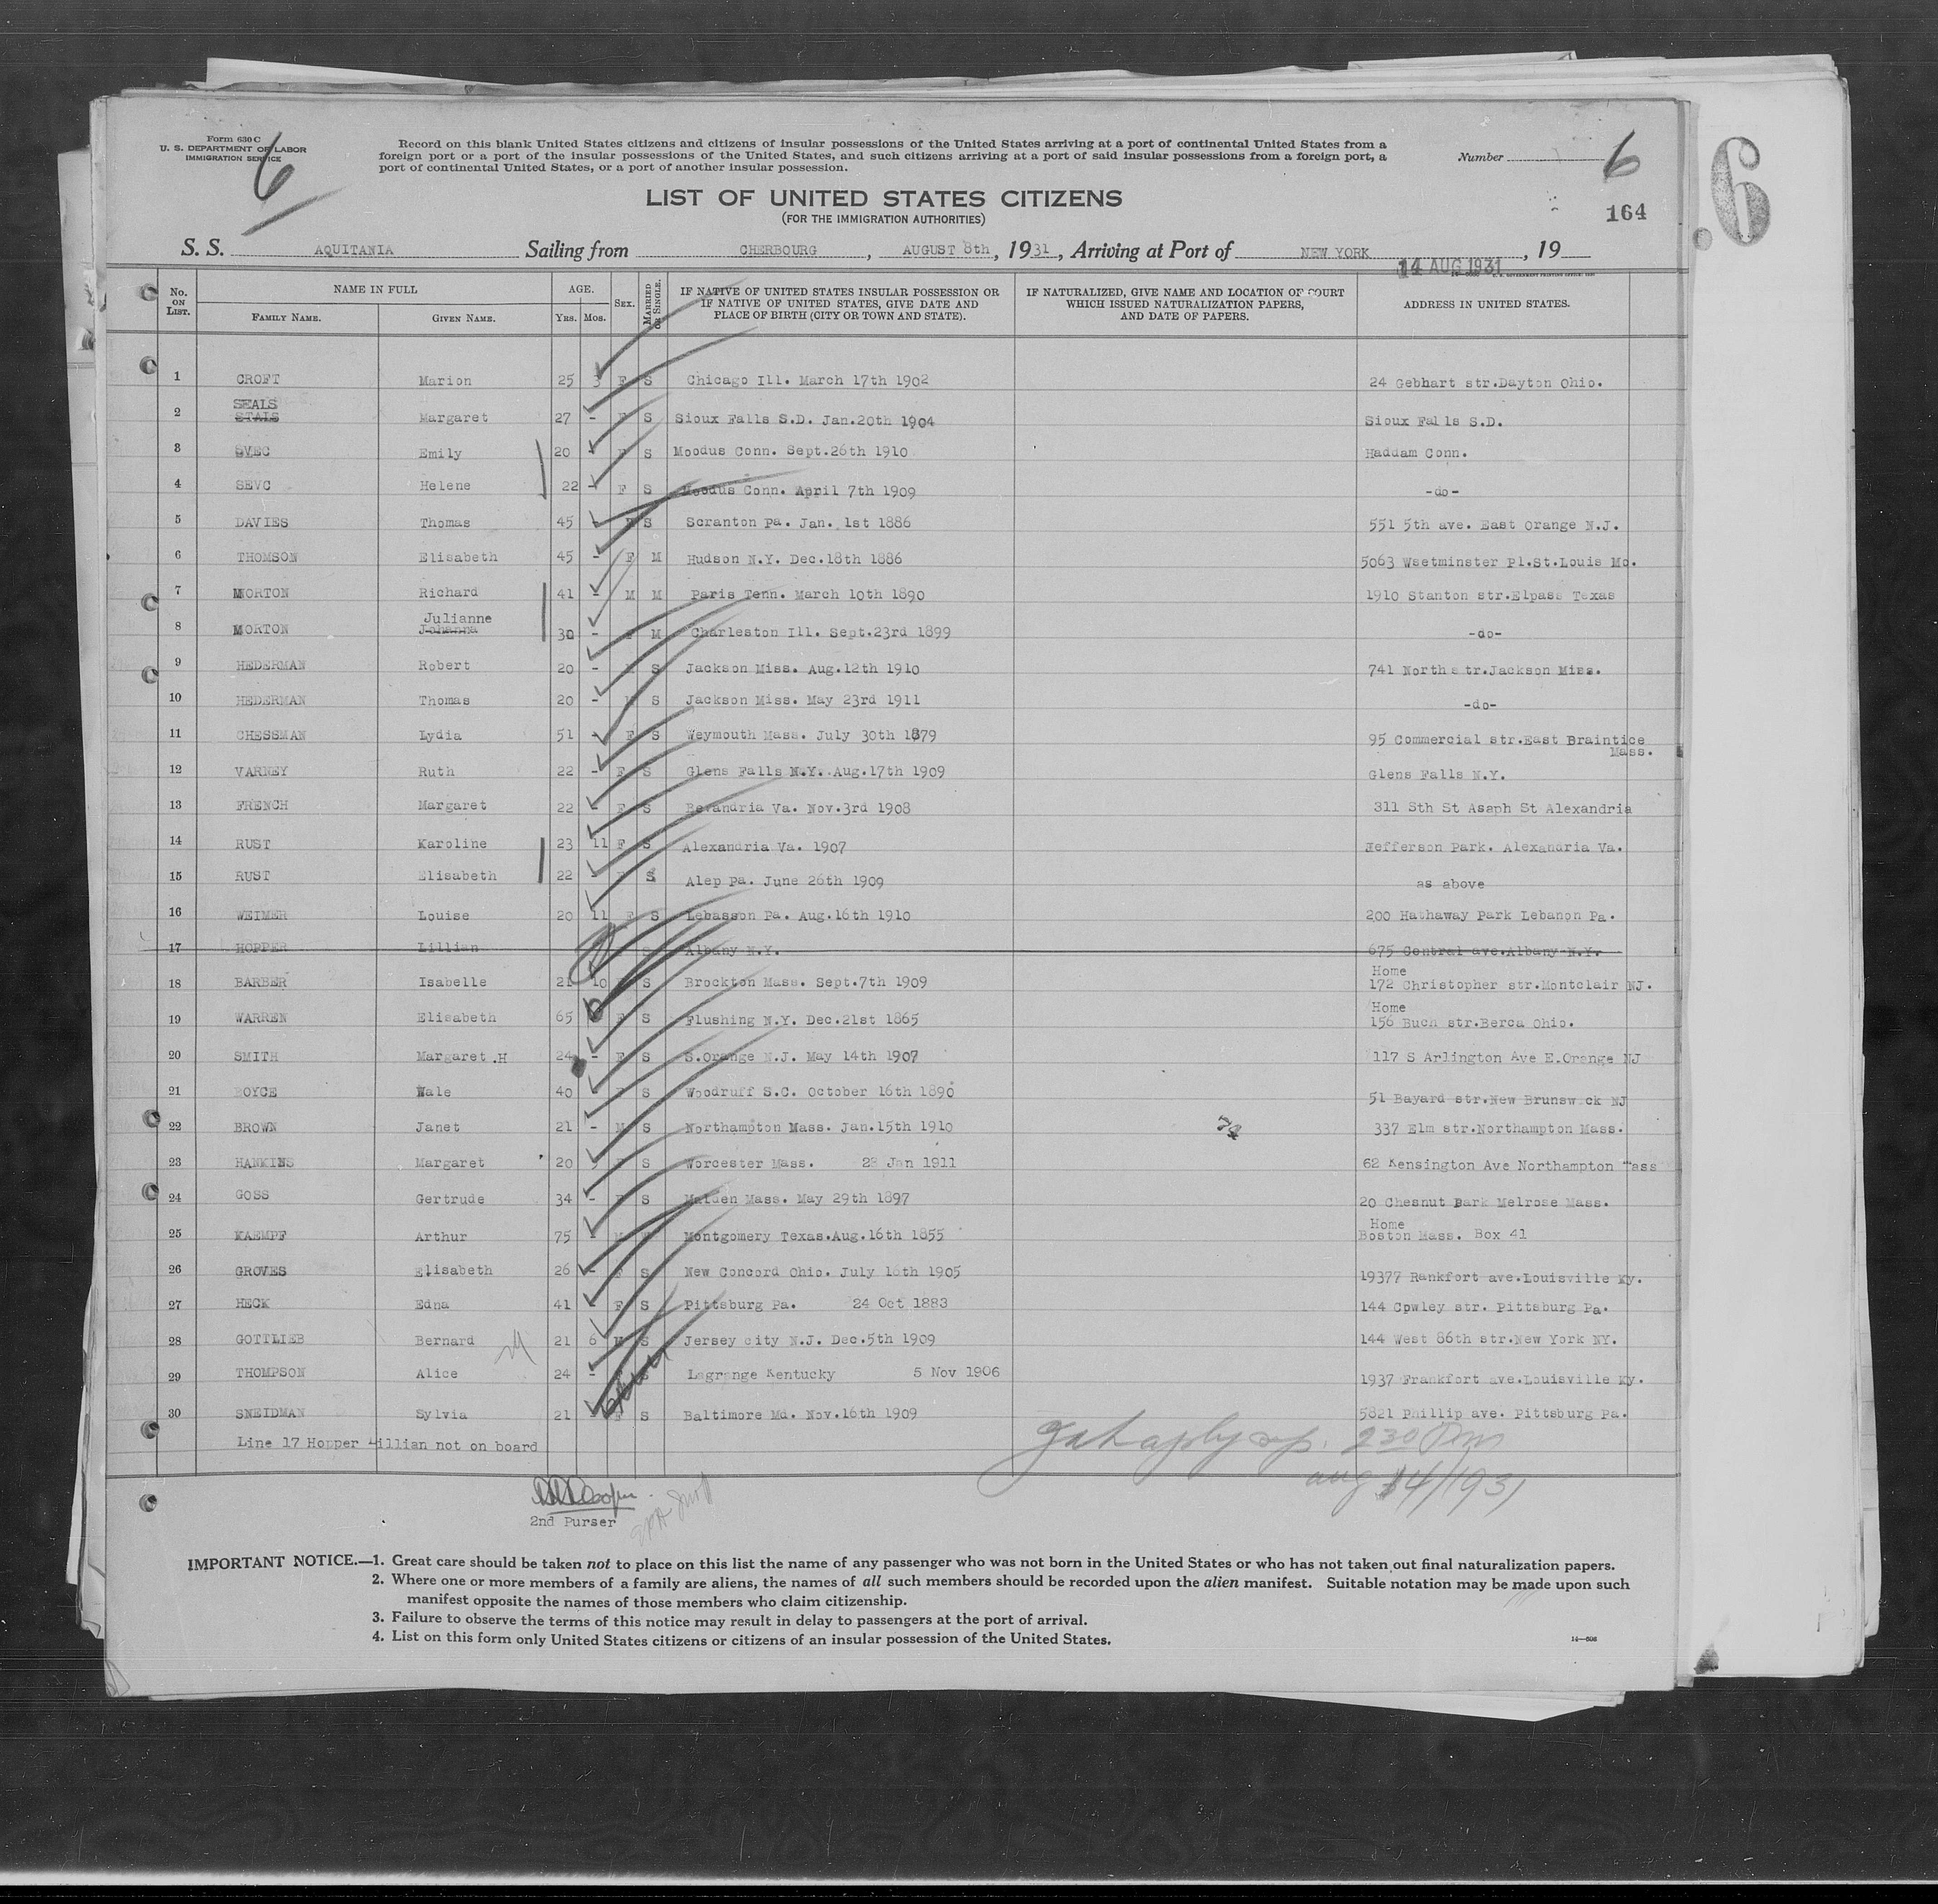 Form 630 C
U. S. DEPARTMENT OF LABOR
IMMIGRATION SERVICE
6
Record on this blank United States citizens and citizens of insular possessions of the United States arriving at a port of continental United States from a
foreign port or a port of the insular possessions of the United States, and such citizens arriving at a port of said insular possessions from a foreign port, a
port of continental United States, or a port of another insular possession.
Number 6
6
164
LIST OF UNITED STATES CITIZENS
(FOR THE IMMIGRATION AUTHORITIES)
S. S. AQUITANIA Sailing from CHERBOURG, AUGUST 8th, 1931, Arriving at Port of NEW YORK, 19
14 AUG 1931
No. ON LIST. NAME IN FULL FAMILY NAME. GIVEN NAME. AGE. YRS. MOS. SEX. MARRIED OR SINGLE. IF NATIVE OF UNITED STATES INSULAR POSSESSION OR IF NATIVE OF UNITED STATES, GIVE DATE AND PLACE OF BIRTH (CITY OR TOWN AND STATE). IF NATURALIZED, GIVE NAME AND LOCATION OF COURT WHICH ISSUED NATURALIZATION PAPERS, AND DATE OF PAPERS. ADDRESS IN UNITED STATES.
1 CROFT Marion 25 3 F S Chicago Ill. March 17th 1902 24 Gebhart str.Dayton Ohio.
SEALS
2 STALS Margaret 27 - F S Sioux Falls S.D. Jan.20th 1904 Sioux Falls S.D.
3 SVEC Emily 20 - F S Moodus Conn. Sept.26th 1910 Haddam Conn.
4 SEVC Helene 22 - F S Moodus Conn. April 7th 1909 -do-
5 DAVIES Thomas 45 - S Scranton Pa. Jan. 1st 1886 551 5th ave. East Orange N.J.
6 THOMSON Elisabeth 45 - F M Hudson N.Y. Dec.18th 1886 5063 Wsetminster Pl.St.Louis Mo.
7 MORTON Richard 41 - M M Paris Tenn. March 10th 1890 1910 Stanton str.Elpass Texas
Julianne
8 MORTON Johanna 30 - F M Charleston Ill. Sept.23rd 1899 -do-
9 HEDERMAN Robert 20 - S Jackson Miss. Aug.12th 1910 741 North str.Jackson Miss.
10 HEDERMAN Thomas 20 - S Jackson Miss. May 23rd 1911 -do-
11 CHESSMAN Lydia 51 - F S Weymouth Mass. July 30th 1879 95 Commercial str.East Braintice
Mass.
12 VARNEY Ruth 22 - F S Glens Falls N.Y. Aug.17th 1909 Glens Falls N.Y.
13 FRENCH Margaret 22 - F S Revandria Va. Nov.3rd 1908 311 Sth St Asaph St Alexandria
14 RUST Karoline 23 11 F S Alexandria Va. 1907 Jefferson Park. Alexandria Va.
15 RUST Elisabeth 22 - F S Alep Pa. June 26th 1909 as above
16 WEIMER Louise 20 11 F S Lebasson Pa. Aug.16th 1910 200 Hathaway Park Lebanon Pa.
17 HOPPER Lillian S Albany N.Y. 675 Central ave.Albany N.Y.
Home
18 BARBER Isabelle 21 10 S Brockton Mass. Sept.7th 1909 172 Christopher str.Montclair NJ.
Home
19 WARREN Elisabeth 65 F S Flushing N.Y. Dec.21st 1865 156 Buch str.Berca Ohio.
20 SMITH Margaret .H 24 - F S S.Orange N.J. May 14th 1907 117 S Arlington Ave E.Orange NJ
21 BOYCE Wale 40 - S Woodruff S.C. October 16th 1890 51 Bayard str.New Brunswick NJ
22 BROWN Janet 21 - M S Northampton Mass. Jan.15th 1910 337 Elm str.Northampton Mass.
23 HANKINS Margaret 20 S Worcester Mass. 28 Jan 1911 62 Kensington Ave Northampton Mass
24 GOSS Gertrude 34 - F S Malden Mass. May 29th 1897 20 Chesnut Park Melrose Mass.
Home
25 KAEMPF Arthur 75 - M Montgomery Texas.Aug.16th 1855 Boston Mass. Box 41
26 GROVES Elisabeth 26 - F S New Concord Ohio. July 16th 1905 19377 Rankfort ave.Louisville Ky.
27 HECK Edna 41 - F S Pittsburg Pa. 24 Oct 1883 144 Cpwley str. Pittsburg Pa.
28 GOTTLIEB Bernard 21 6 M S Jersey city N.J. Dec.5th 1909 144 West 86th str.New York NY.
29 THOMPSON Alice 24 - S Lagrange Kentucky 5 Nov 1906 1937 Frankfort ave.Louisville Ky.
30 SNEIDMAN Sylvia 21 F S Baltimore Md. Nov.16th 1909 5821 Phillip ave. Pittsburg Pa.
Line 17 Hopper Lillian not on board
2 30 Pm
aug 14/1931
2nd Purser
IMPORTANT NOTICE.—1. Great care should be taken not to place on this list the name of any passenger who was not born in the United States or who has not taken out final naturalization papers.
2. Where one or more members of a family are aliens, the names of all such members should be recorded upon the alien manifest. Suitable notation may be made upon such
manifest opposite the names of those members who claim citizenship.
3. Failure to observe the terms of this notice may result in delay to passengers at the port of arrival.
4. List on this form only United States citizens or citizens of an insular possession of the United States.